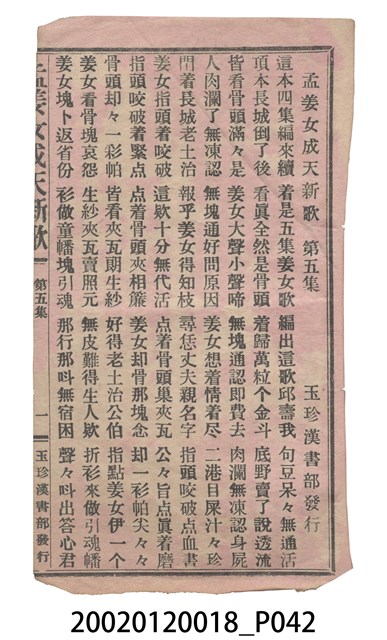 孟姜女成天新歌　第五集
玉珍漢書部發行
這本四集編來續　着是五集姜女歌　編出這歌邱壽我　句豆呆々無通活
頂本長城倒了後　看眞全然是骨頭　着歸萬粒个金斗　底野賣了說透流
皆看骨頭滿々是　姜女大聲小聲啼　無塊通認即費去　肉瀾無凍認身屍
人肉瀾了無凍認　無塊通好問原因　姜女想着情着尽　二港目屎汁々珍
門着長城老土治　報乎姜女得知枝　尋恁丈夫親名字　指頭咬破点血書
姜女指頭着咬破　這欵十分無代活　点着骨頭巢夾瓦　公々旨点眞着磨
指頭咬破着緊点　点着骨頭夾相簾　姜女却骨那塊念　却一彩帕尖々々
骨頭却々一彩帕　皆看夾瓦朗生紗　好得老土治公伯　指點姜女伊一个
姜女看骨塊哀怨　生紗夾瓦賣照元　無皮難得生人欵　折衫來做引魂幡
姜女塊卜返省份　衫做童幡塊引魂　那行那呌無宿困　聲々呌出答心君
孟姜女成天新歌　第五集　一　玉珍漢書部發行
20020120018_P042